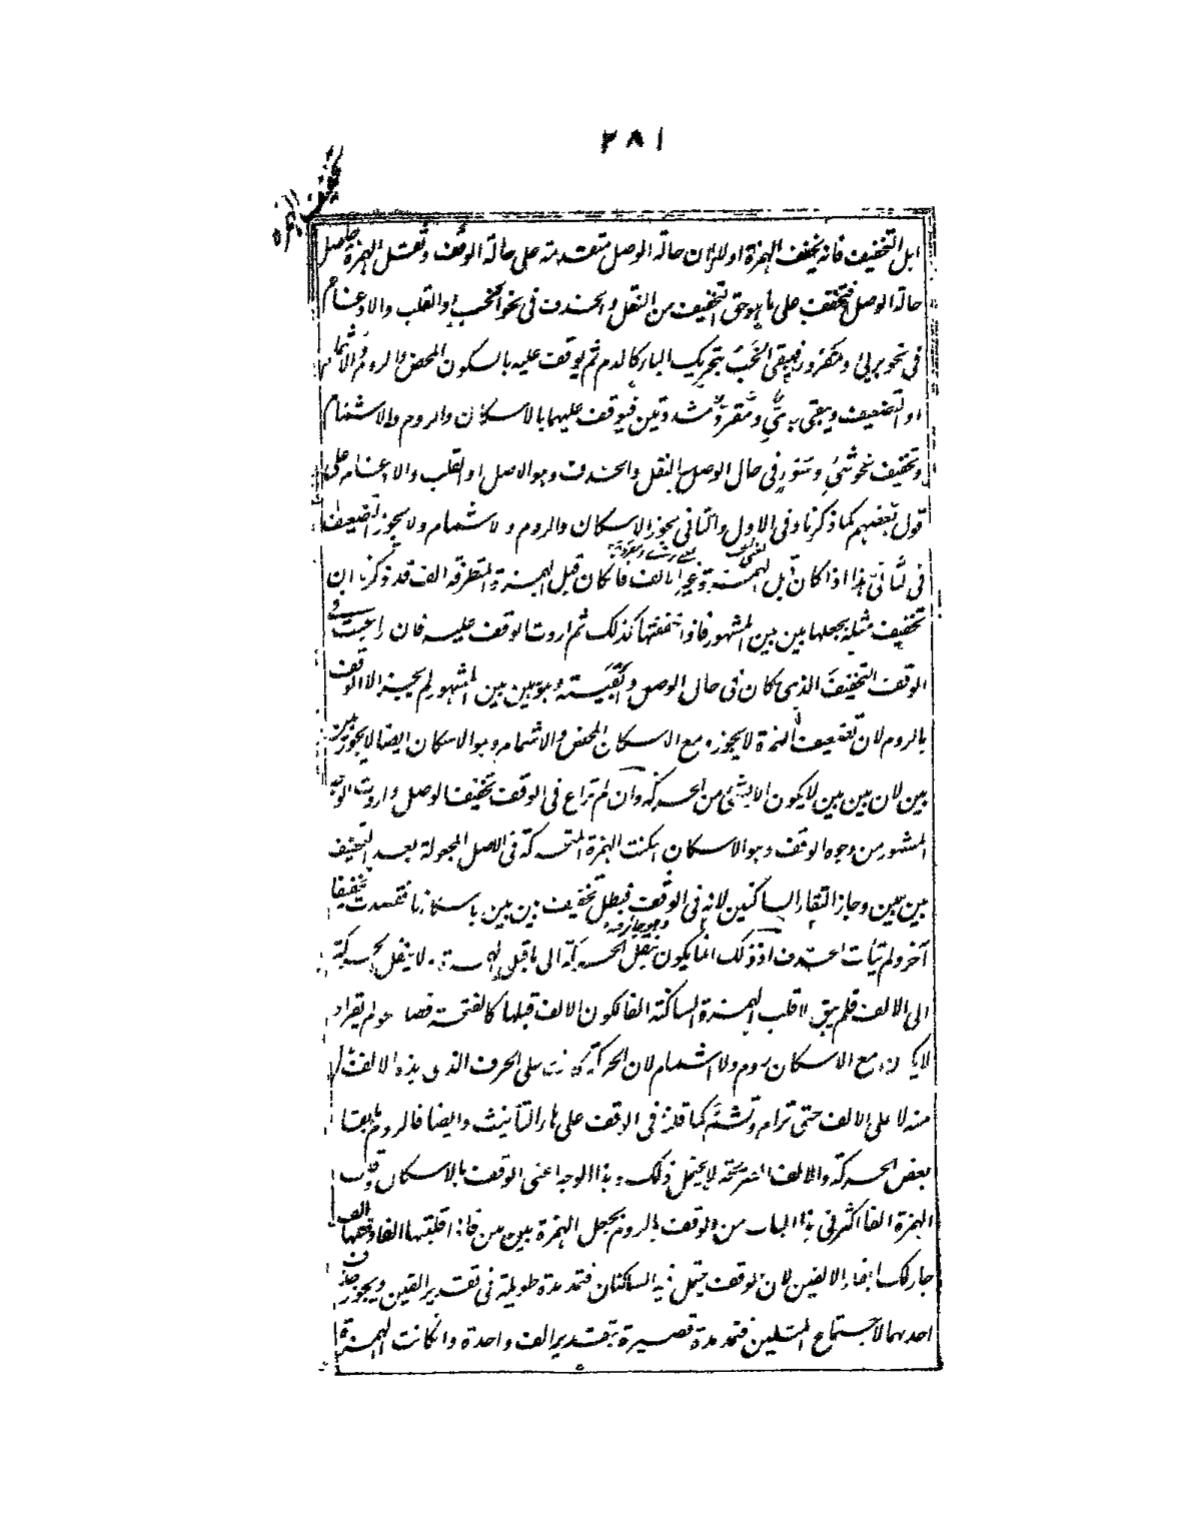 ٢٨١
تخفيف الهمزة
اهل التخفيف فانه يخفف الهمزة اولا لان حالة الوصل متقدمة على حالة الوقف وثقل الهمزة حاصل
حالة الوصل فتخفف على ما هو حق التخفيف من النقل والحذف فى نحو الخبء والقلب والادغام
فى نحو برىء ومقروء فيبقى الخب بتحريك الباء كالدم ثم يوقف عليه بالسكون المحض والروم والاشمام
او التضعيف ويبقى برىّ ومقروّ مشددتين فيوقف عليهما بالاسكان والروم والاشمام
وتخفيف نحو شىء وسوء فى حال الوصل النقل والحذف وهو الاصل او القلب والادغام على
قول بعضهم كما ذكرنا وفى الاول والثانى يجوز الاسكان والروم والاشمام ولا يجوز التضعيف
فى الثانى هذا اذا كان قبل الهمزة غير الالف فاما كان قبل الهمزة المتطرفة الف قد ذكرنا ان
تخفيف مثله بجعلها بين بين المشهور فاذا خففتها كذلك ثم اردت الوقف عليه فان راعيت فى
الوقف التخفيف الذى كان فى حال الوصل وابقيته وهو بين بين المشهور لم يجز الا الوقف
بالروم لان تضعيف الهمزة لا يجوز ومع الاسكان المحض والاشمام وهو الاسكان ايضا لا يجوز بين
بين لان بين بين لا يكون الا بشىء من الحركة وان لم تراع فى الوقف تخفيف الوصل واردت الوجه
المشهور من وجوه الوقف وهو الاسكان اسكنت الهمزة المتحركة فى الاصل المجعولة بعد التخفيف
بين بين وجاز التقاء الساكنين لانه فى الوقف فبطل تخفيف بين بين باسكانها فقصدت تخفيفا
آخر ولم يتأت الحذف اذ ذلك انما يكون بنقل الحركة الى ما قبل الهمزة ولا ينقل الحركة
الى الالف فلم يبق الا قلب الهمزة الساكنة الفا لكون الالف قبلها كالفتحة فصار
لا يكون مع الاسكان روم ولا اشمام لان الحركة كانت على الحرف الذى هذه الالف بدل
منه لا على الالف حتى ترام وتشم كما قلنا فى الوقف على هاء التأنيث وايضا فالروم بابقاء
بعض الحركة والالف الصريحة لا يحتمل ذلك وهذا الوجه اعنى الوقف بالاسكان وقلب
الهمزة الفا اكثر فى هذا الباب من الوقف بالروم بجعل الهمزة بين بين فاذا قلبتها الفا وقبلها الف
جاز لك ابقاء الالفين لان الوقف يحتمل فيه الساكنان فتمد مدة طويلة فى تقدير الفين ويجوز حذف
احدهما لاجتماع المثلين فتمد مدة قصيرة بتقدير الف واحدة وان كانت الهمزة